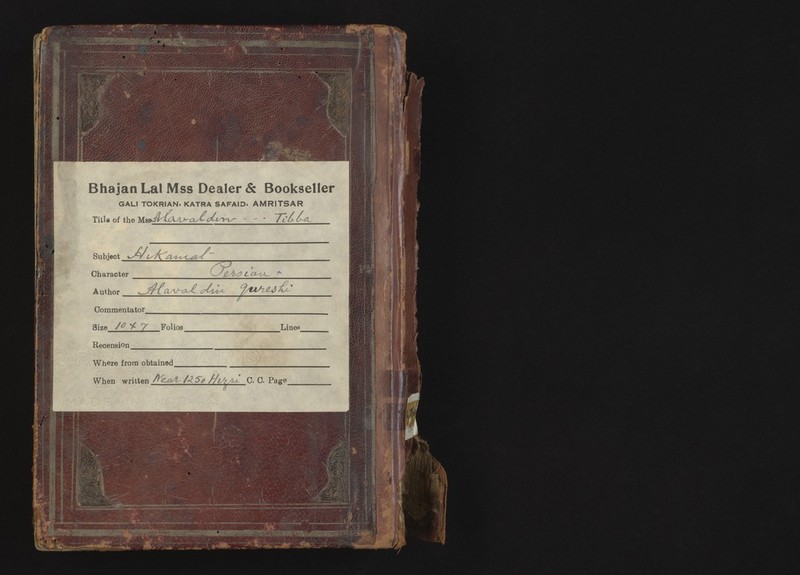 Bhajan Lal Mss Dealer & Bookseller
GALI TOKRIAN, KATRA SAFAID, AMRITSAR
Title of the Mss Alavaldin - - - Tibba
Subject Hikamat
Character Persian
Author Alavaldin Qureshi
Commentator
Size 10 x 7 Folios Lines
Recension
Where from obtained
When written Near 1250 Hezri C. C. Page